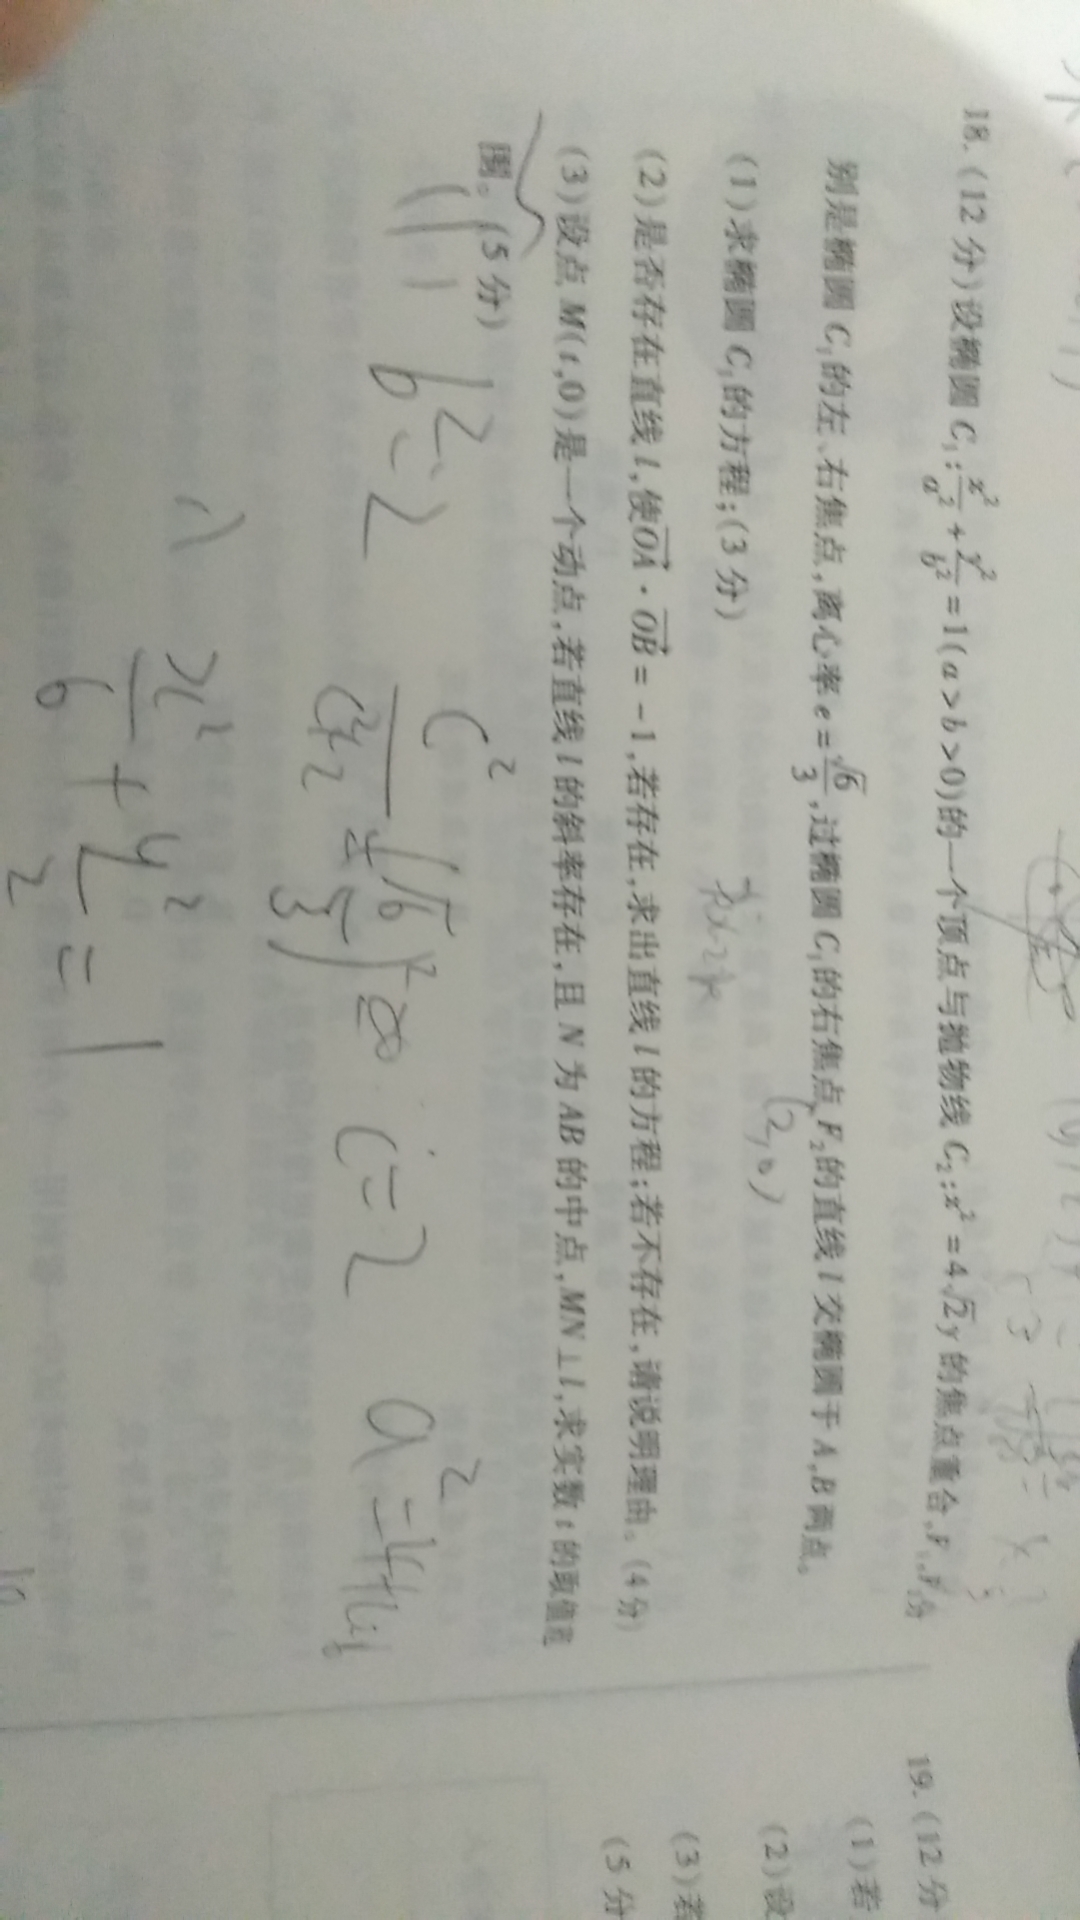 18.(12分)设椭圆C₁:x²/a²+y²/b²=1(a>b>0)的一个顶点与抛物线C₂:x²=4√2y的焦点重合,F₁,F₂分
别是椭圆C₁的左、右焦点,离心率e=√6/3,过椭圆C₁的右焦点F₂的直线l交椭圆于A,B两点。
(2,0)
(1)求椭圆C₁的方程;(3分)
(2)是否存在直线l,使OA·OB=-1,若存在,求出直线l的方程;若不存在,请说明理由。(4分)
(3)设点M(t,0)是一个动点,若直线l的斜率存在,且N为AB的中点,MN⊥l,求实数t的取值范
围。(5分)
b²=2
c=2
x²/6+y²/2=1
19.(12分
(1)若
(2)设
(3)若
(5分